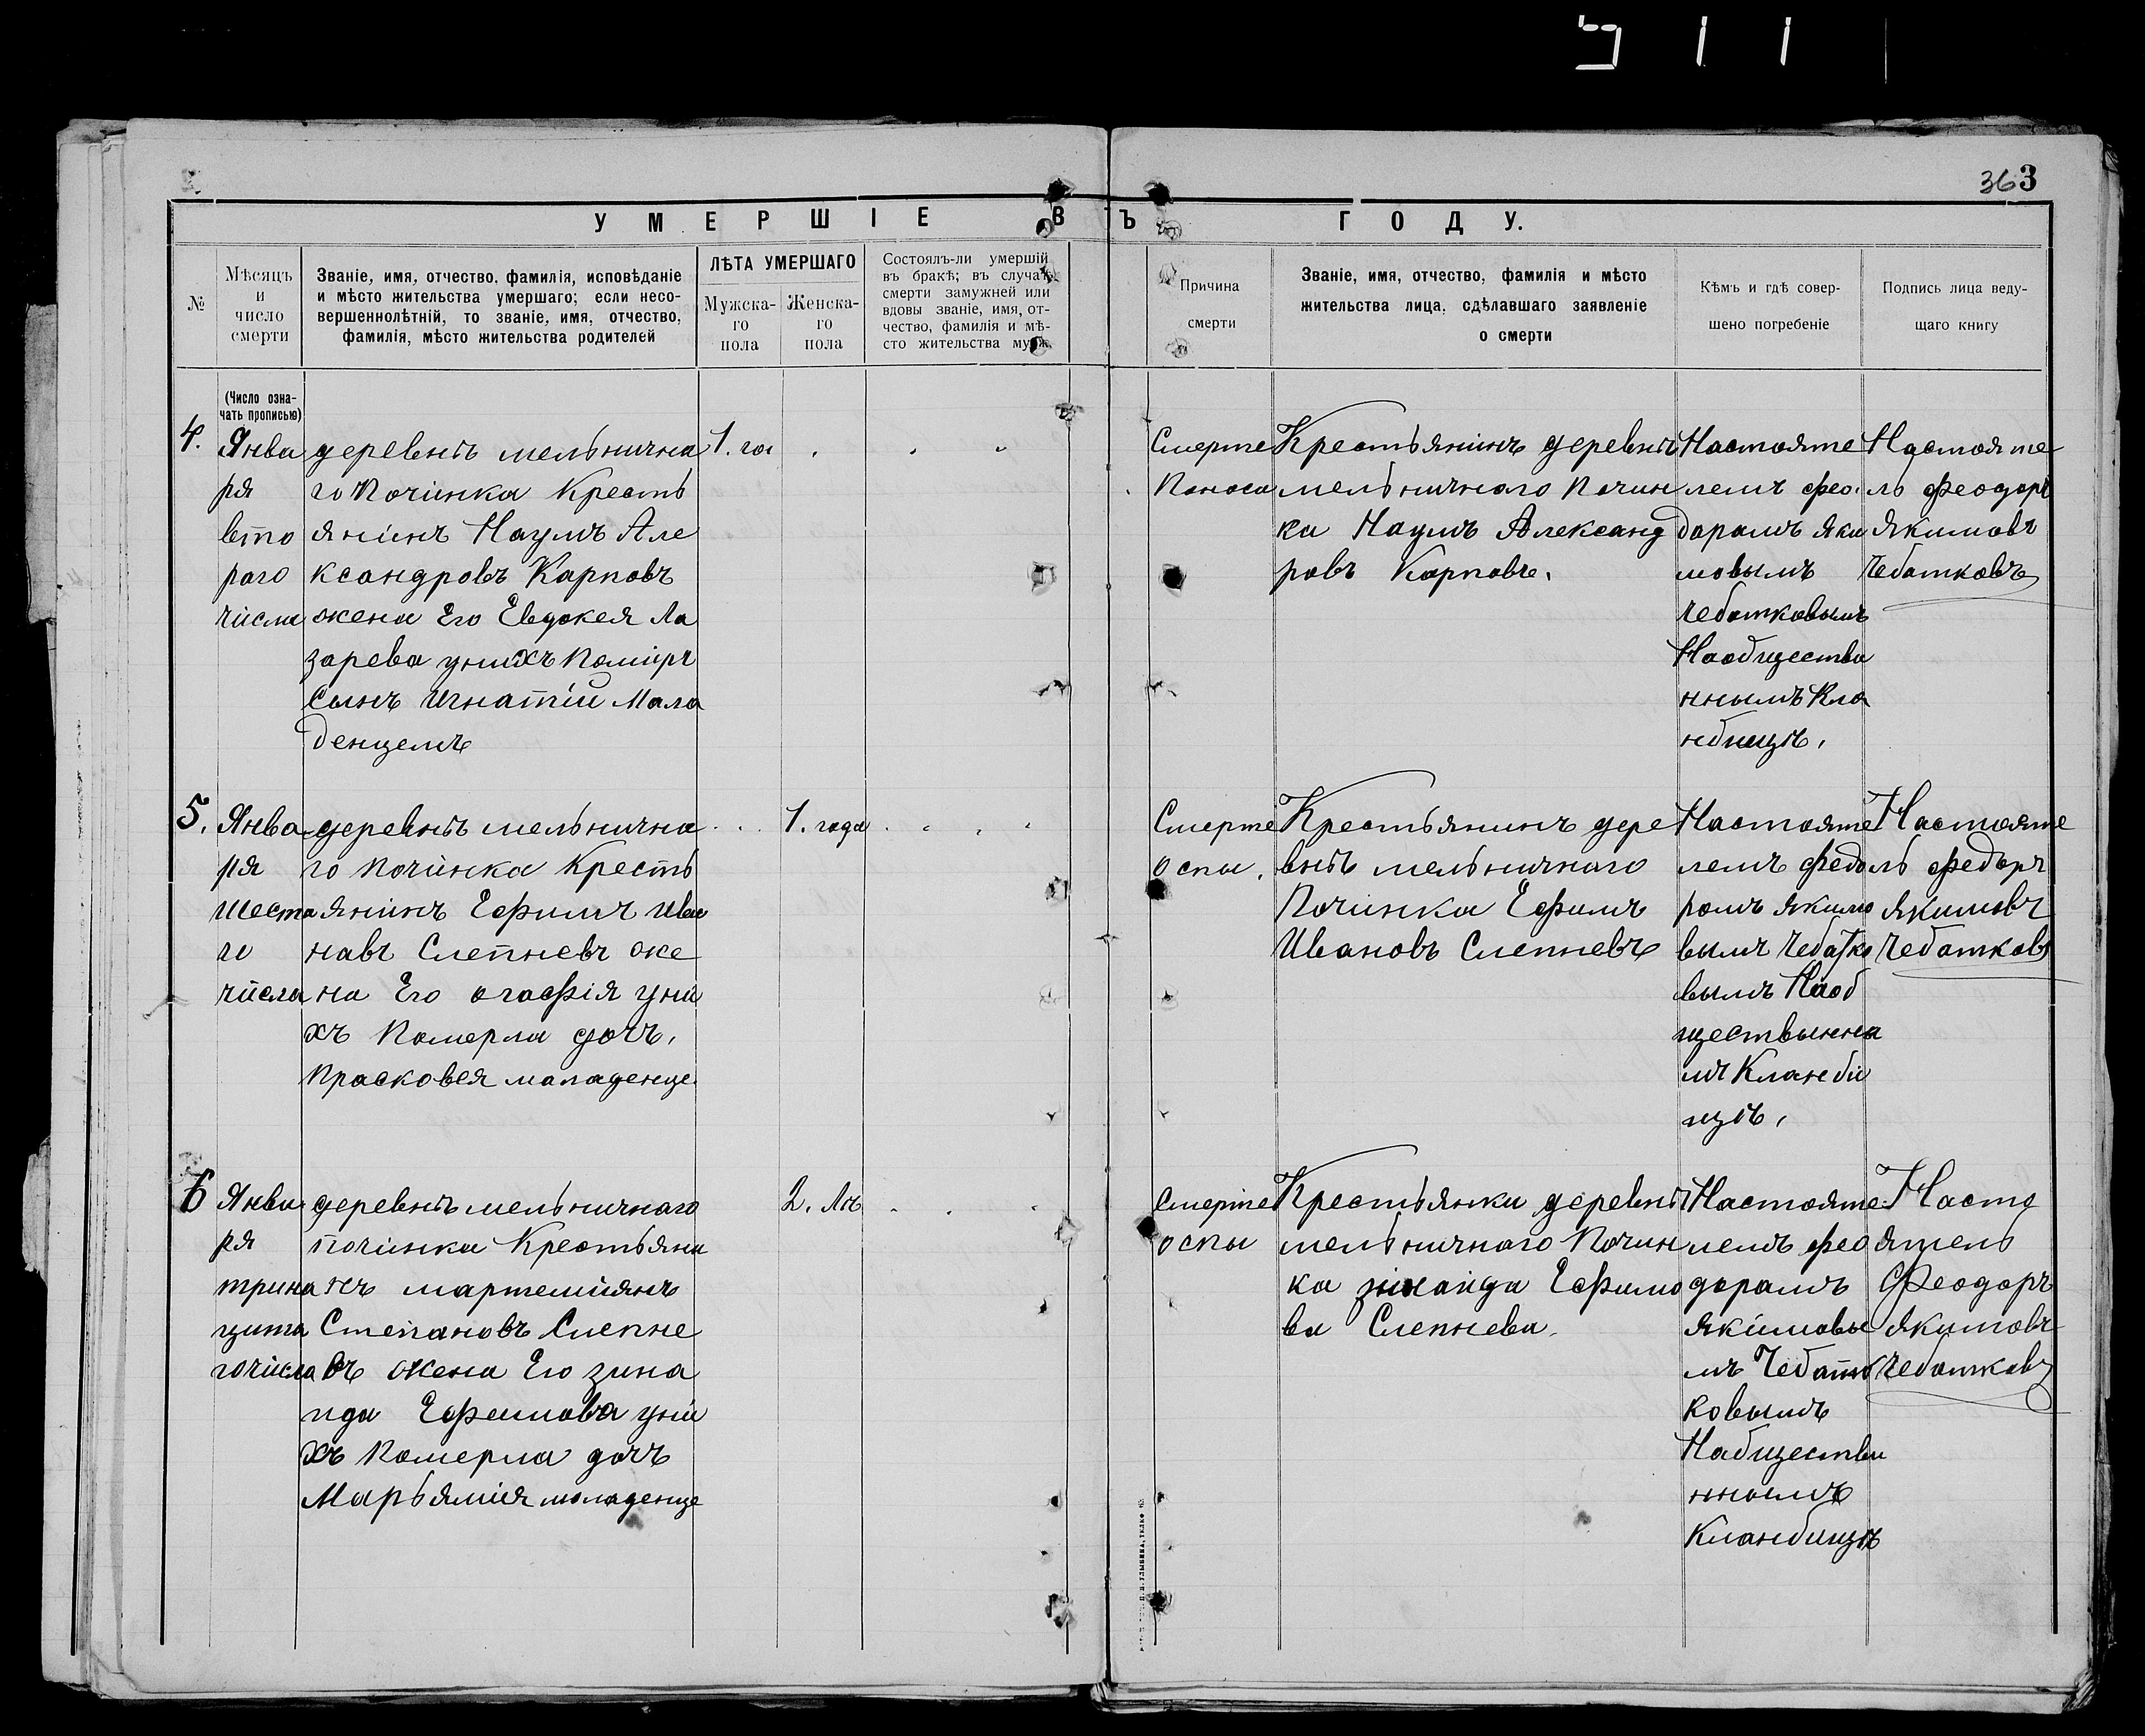 363
УМЕРШІЕ ВЪ ГОДУ.
№
Мѣсяцъ
и
число
смерти
Званіе, имя, отчество, фамилія, исповѣданіе
и мѣсто жительства умершаго; если несо-
вершеннолѣтній, то званіе, имя, отчество,
фамилія, мѣсто жительства родителей
ЛѢТА УМЕРШАГО
Мужска-
го
пола
Женска-
го
пола
Состоялъ-ли умершій
въ бракѣ; въ случаѣ
смерти замужней или
вдовы званіе, имя, от-
чество, фамилія и мѣ-
сто жительства мужа
Причина
смерти
Званіе, имя, отчество, фамилія и мѣсто
жительства лица, сдѣлавшаго заявленіе
о смерти
Кѣмъ и гдѣ совер-
шено погребеніе
Подпись лица веду-
щаго книгу
(Число озна-
чать прописью)
4.
Янва
ря
вто
раго
числа
деревнѣ мельнична
го Починка Кресть
янинъ Наумъ Але
ксандровъ Карповъ
жена Его Евдокея Ла
зарева унихъ Помиръ
Сынъ Игнатій Мала
денцемъ
1. го
Смерте
Поноса
Крестьянинъ деревнѣ
мельничнаго Почин
ка Наумъ Александ
ровъ Карповъ.
Настояте
лемъ Фео
дорамъ Яки
мовымъ
Чебатковымъ
Наобществи
ннымъ Кла
нбищѣ.
Настояте
ль Феодоръ
Якимовъ
Чебатковъ
5.
Янва
ря
Шеста
го
числа
деревнѣ мельнична
го Починка Кресть
янинъ Ефимъ Ива
навъ Слепневъ же
на Его агафія уни
хъ Померла дочъ,
Прасковея маладенце
1. года
Смерте
оспы.
Крестьянинъ дере
внѣ мельничнаго
Починка Ефимъ
Ивановъ Слепневъ
Настояте
лемъ Федо
ромъ Якимо
вымъ Чебатко
вымъ Наоб
ществынна
мъ Кланби
щѣ.
Настояте
ль Федоръ
Якимовъ
Чебатковъ
6
Янва
ря
трина
цата
го числа
деревнѣ мельничнаго
починка Крестьяни
нъ мартеміянъ
Степановъ Слепне
въ жена Его зина
ида Ефимова уни
хъ Померла дочъ
Марьямія моладенце
2. Лѣ
Смерте
оспы
Крестьянка деревнѣ
мельничнаго Почин
ка зинаида Ефимо
ва Слепнева.
Настояте
лемъ Фео
дорамъ
Якимовы
мъ Чебат
ковымъ
Наобществи
ннымъ
Кланбищѣ
Насто
ятель
Феодоръ
Якимовъ
Чебатковъ